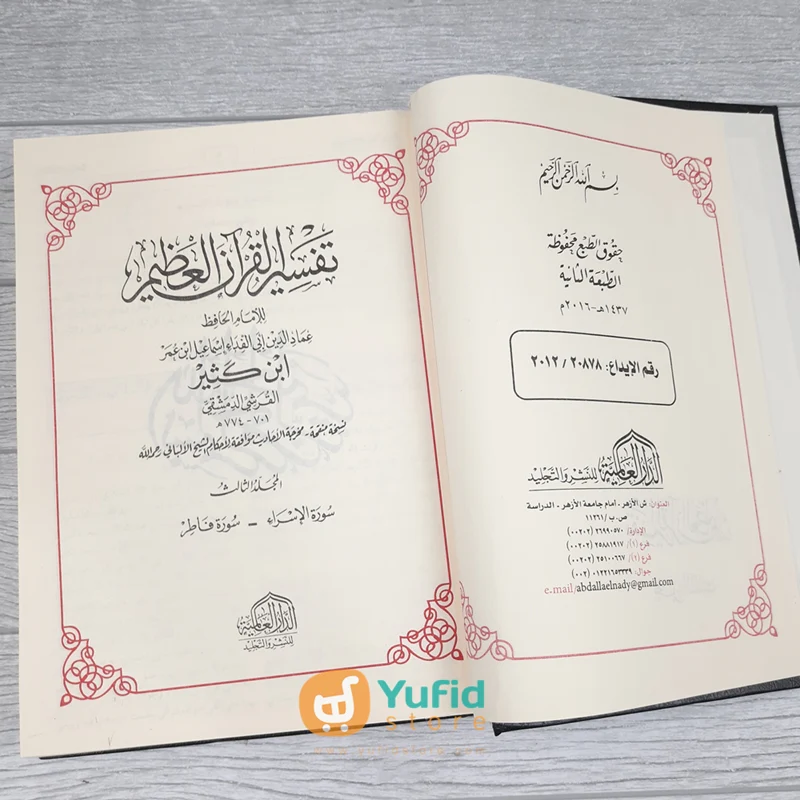 بسم الله الرحمن الرحيم
حقوق الطبع محفوظة
الطبعة الثانية
١٤٣٧هـ-٢٠١٦م
رقم الإيداع: ٢٠٨٧٨ / ٢٠١٢
الدار العالمية
للنشر والتجليد
العنوان: ش الأزهر - أمام جامعة الأزهر - الدراسة
ص.ب/ ١١٣٦١
الإدارة/ ٢٦٩٩٠٥٧٠ (٠٠٢٠٢)
فرع (١)/ ٢٥٨٨١٩١٧ (٠٠٢٠٢)
فرع (٢)/ ٢٥١٠٠٦٦٧ (٠٠٢٠٢)
جوال: ٠١٢٢١٦٥٣٣٣٩ (٠٠٢)
e.mail/abdallaelnady@gmail.com
تفسير القرآن العظيم
للإمام الحافظ
عماد الدين أبي الفداء إسماعيل ابن عمر
ابن كثير
القرشي الدمشقي
٧٠١ - ٧٧٤هـ
نسخة منقحة - مخرجة الأحاديث موافقة لأحكام الشيخ الألباني رحمه الله
المجلد الثالث
سورة الإسراء - سورة فاطر
الدار العالمية
للنشر والتجليد
Yufid
store